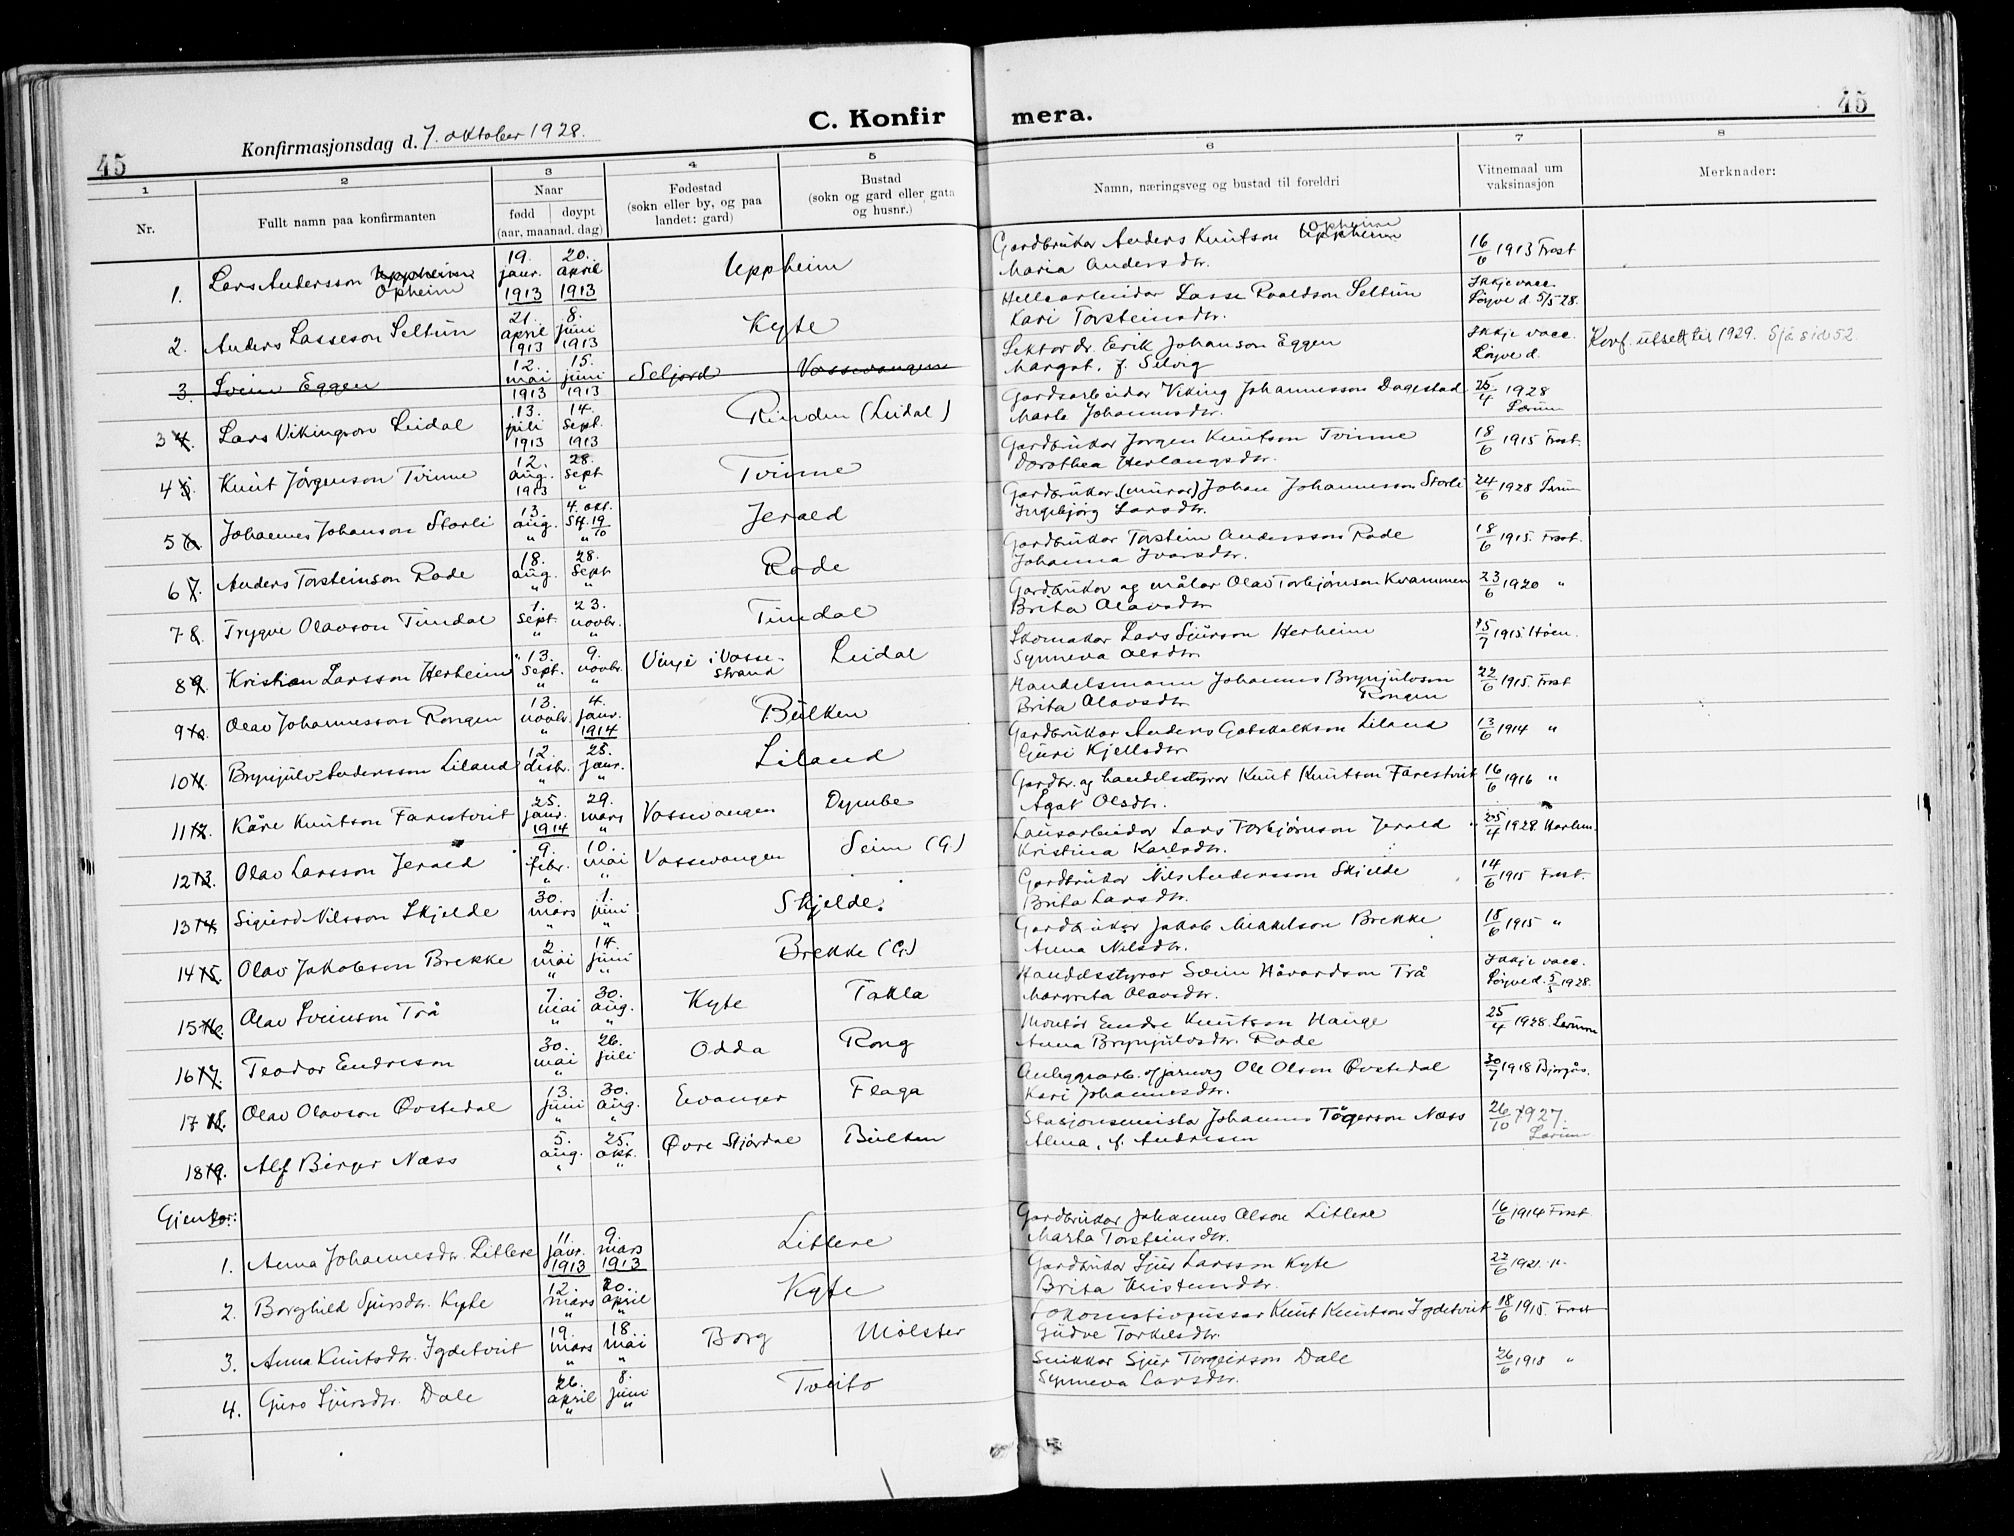 45
Konfirmasjonsdag d. 7. oktober 1928.
C. Konfir mera.
45
1 2 3 4 5 6 7 8
Nr.
Fullt namn paa konfirmanten
Naar
fødd døypt
(aar, maanad. dag)
Fødestad
(sokn eller by, og paa
landet: gard)
Bustad
(sokn og gard eller gata
og husnr.)
Namn, næringsveg og bustad til foreldri
Vitnemaal um
vaksinasjon
Merknader:
1. Lars Andersson Uppheim Opheim 19. janr. 1913 20. april 1913 Uppheim Gardbrukar Anders Knutson Uppheim Opheim
Maria Andersdtr. 16/6 1913 Frost
2. Anders Lasseson Seltun 21. april 1913 8. juni 1913 Kyte Hellearbeidar Lasse Roaldson Seltun
Kari Torsteinsdtr. Ikkje vacc. Løyve d. 5/5 28.
3. Svein Eggen 12. mai 1913 15. juni 1913 Seljord Vossevangen Lektor dr. Erik Johanson Eggen
Margot, f. Selvig Ikkje vacc. Løyve d. Konf. utsett til 1929. Sjå sid 52.
3 4. Lars Vikingson Leidal 13. juli 1913 14. sept. 1913 Rinden (Leidal) Gardsarbeidar Viking Johannesson Dagestad
Marta Johannesdtr. 25/4 1928 Lærum
4 5. Knut Jørgenson Tvinne 12. aug. 1913 28. sept. " Tvinne Gardbrukar Jørgen Knutson Tvinne
Dorothea Herlaugsdtr. 18/6 1915 Frost.
5 6. Johannes Johanson Storli 13. aug. " 4. okt. Stf. 19/10 " Jerald Gardbrukar (murar) Johan Johannesson Storli
Ingebjørg Larsdtr. 24/6 1928 Lærum
6 7. Anders Torsteinson Rode 18. aug. " 28. sept. " Rode Gardbrukar Torstein Andersson Rode
Johanna Ivarsdtr. 18/6 1915. Frost.
7 8. Trygve Olavson Tundal 1. sept. " 23. novbr. " Tundal Gardbrukar og målar Olav Torbjørnson Kvammen
Brita Olavsdtr 23/6 1920 "
8 9. Kristian Larsson Herheim 13. sept. " 9. novbr. " Vinje i Vossestrand Leidal Skomakar Lars Sjurson Herheim
Synneva Olsdtr. 15/7 1915 Høen.
9 10. Olav Johannesson Rongen 13. novbr. " 4. janr. 1914 Bulken Handelsmann Johannes Brynjulvson Rongen
Brita Olavsdtr 22/6 1915. Frost
10 11. Brynjulv Andersson Liland 12. desbr. " 25. janr. " Liland Gardbrukar Anders Gotskalkson Liland
Guri Kjellsdtr 13/6 1914 "
11 12. Kåre Knutson Farestveit 25. janr. 1914 29. mars " Vossevangen Dymbe Gardbr. og handelsstyrar Knut Knutson Farestveit
Ågot Olsdtr. 16/6 1916 "
12 13. Olav Larsson Jerald 9. febr. " 10. mai " Vossevangen Seim (G) Lausarbeidar Lars Torbjørnson Jerald
Kristina Karlsdtr. 25/4 1928
13 14. Sigurd Nilsson Skjelde 30. mars " 1. juni " Skjelde. Gardbrukar Nils Andersson Skjelde
Brita Larsdtr. 14/6 1915 Frost.
14 15. Olav Jakobson Brekke 2. mai " 14. juni " Brekke (G) Gardbrukar Jakob Mikkelson Brekke
Anna Nilsdtr. 18/6 1915 "
15 16. Olav Sveinson Trå 7. mai " 30. aug. " Kyte Takla Handelsstyrar Svein Håvardson Trå
Margreta Olavsdtr. Ikkje vacc. Løyve d. 5/5 1928.
16 17. Teodor Endreson 30. mai " 26. juli Odda Rong Montør Endre Knutson Hauge
Anna Brynjulvsdtr. Rode 25/4 1928. Lærum
17 18. Olav Olavson Øvstedal 13. juni " 30. aug. " Evanger Flaga Anleggsarb. v/jarnveg Ole Olson Øvstedal
Kari Johannesdtr. 30/7 1918 Bjorgås.
18 19. Alf Birger Næss 5. aug. " 25. okt. " Øvre Stjørdal Bulken Stasjonsmeistar Johannes Tøgerson Næss
Alma, f. Andresen 26/10 1927. Lærum
Gjentor:
1. Anna Johannesdtr. Litlere 11. janr. 1913 9. mars 1913 Litlere Gardbrukar Johannes Olson Litlere
Marta Torsteinsdtr. 16/6 1914 Frost
2. Borghild Sjursdtr. Kyte 12. mars " 20. april " Kyte Gardbrukar Sjur Larsson Kyte
Brita Kristensdtr. 22/6 1921. "
3. Anna Knutsdtr. Igdetveit 19. mars " 18. mai " Borg Mølster Lokomotivpussar Knut Knutson Igdetveit
Gudve Torkelsdtr. 18/6 1915 Frost
4. Guro Sjursdtr. Dale 26. april " 8. juni " Tveito Snikkar Sjur Torgeirson Dale
Synneva Larsdtr. 26/6 1918 "